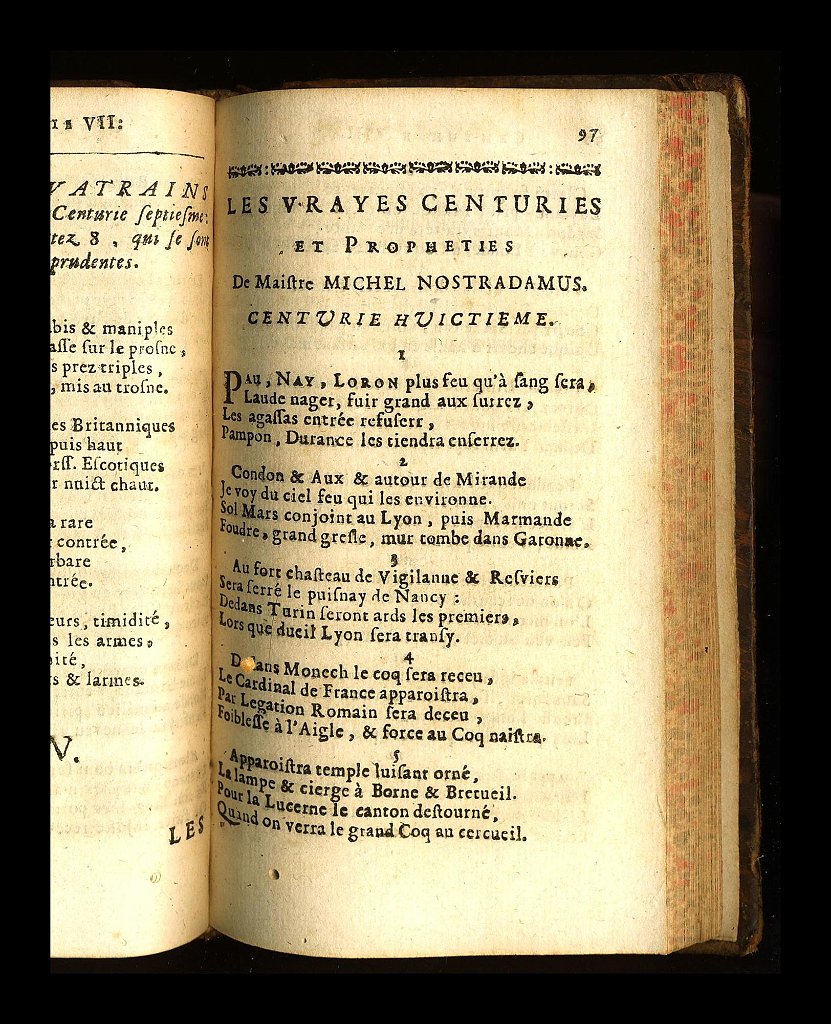 VII:
VATRAINS
Centurie ſeptieſme:
tez 8, qui ſe ſont
prudentes.
bis & maniples
aſſe ſur le proſne,
s prez triples,
, mis au troſne.
es Britanniques
puis haut
rſſ. Eſcotiques
r nuict chaut.
a rare
contrée,
rbare
ntrée.
eurs, timidité,
s les armes,
ité,
s & larmes.
V.
LES
97
LES VRAYES CENTURIES
ET PROPHETIES
De Maiſtre MICHEL NOSTRADAMUS.
CENTURIE HUICTIEME.
1
PAU, NAY, LORON plus feu qu'à ſang ſera,
Laude nager, fuir grand aux ſurrez,
Les agaſſas entrée refuſerr,
Pampon, Durance les tiendra enſerrez.
2
Condon & Aux & autour de Mirande
Je voy du ciel feu qui les environne.
Sol Mars conjoint au Lyon, puis Marmande
Foudre, grand greſle, mur tombe dans Garonne.
3
Au fort chaſteau de Vigilanne & Reſviers
Sera ſerré le puiſnay de Nancy:
Dedans Turin ſeront ards les premiers,
Lors que dueil Lyon ſera tranſy.
4
Dedans Monech le coq ſera receu,
Le Cardinal de France apparoiſtra,
Par Legation Romain ſera deceu,
Foibleſſe à l'Aigle, & force au Coq naiſtra.
5
Apparoiſtra temple luiſant orné,
La lampe & cierge à Borne & Bretueil.
Pour la Lucerne le canton deſtourné,
Quand on verra le grand Coq au cercueil.